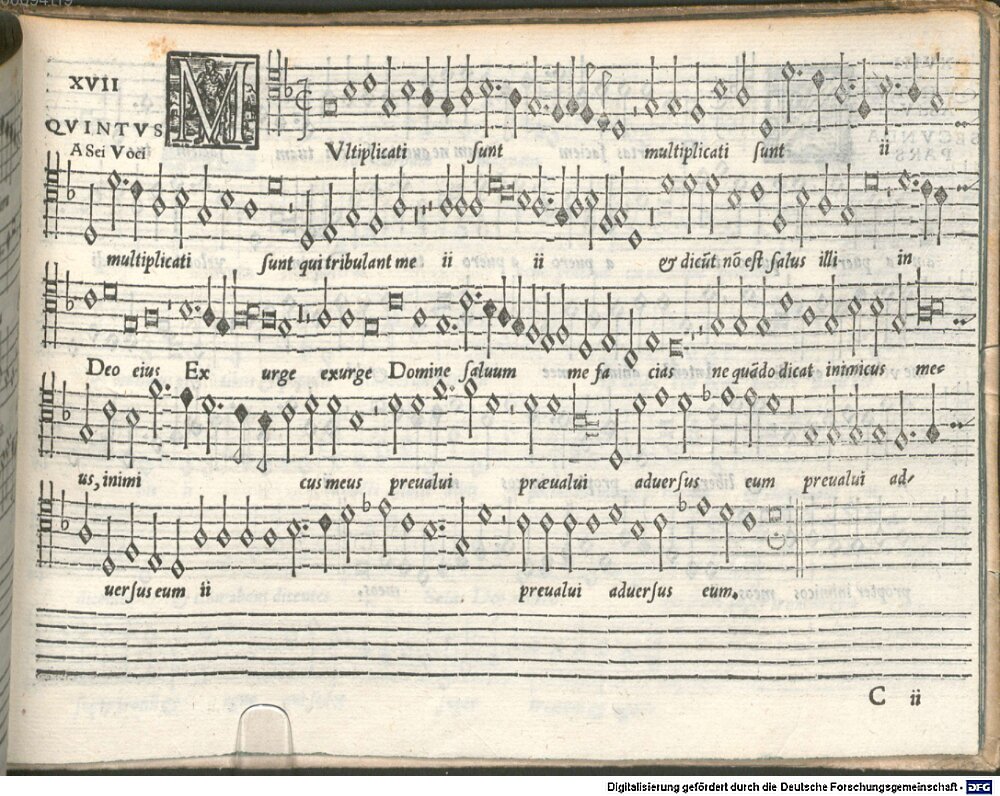 XVII
QVINTVS
A Sei Voci
MVltiplicati sunt multiplicati sunt ii
multiplicati sunt qui tribulant me ii ii & dicūt nō est salus illi in
Deo eius Ex urge exurge Domine saluum me fa cias ne quādo dicat inimicus me-
us, inimi cus meus preualui præualui aduersus eum preualui ad-
uersus eum ii preualui aduersus eum.
C ii
Digitalisierung gefördert durch die Deutsche Forschungsgemeinschaft - DFG